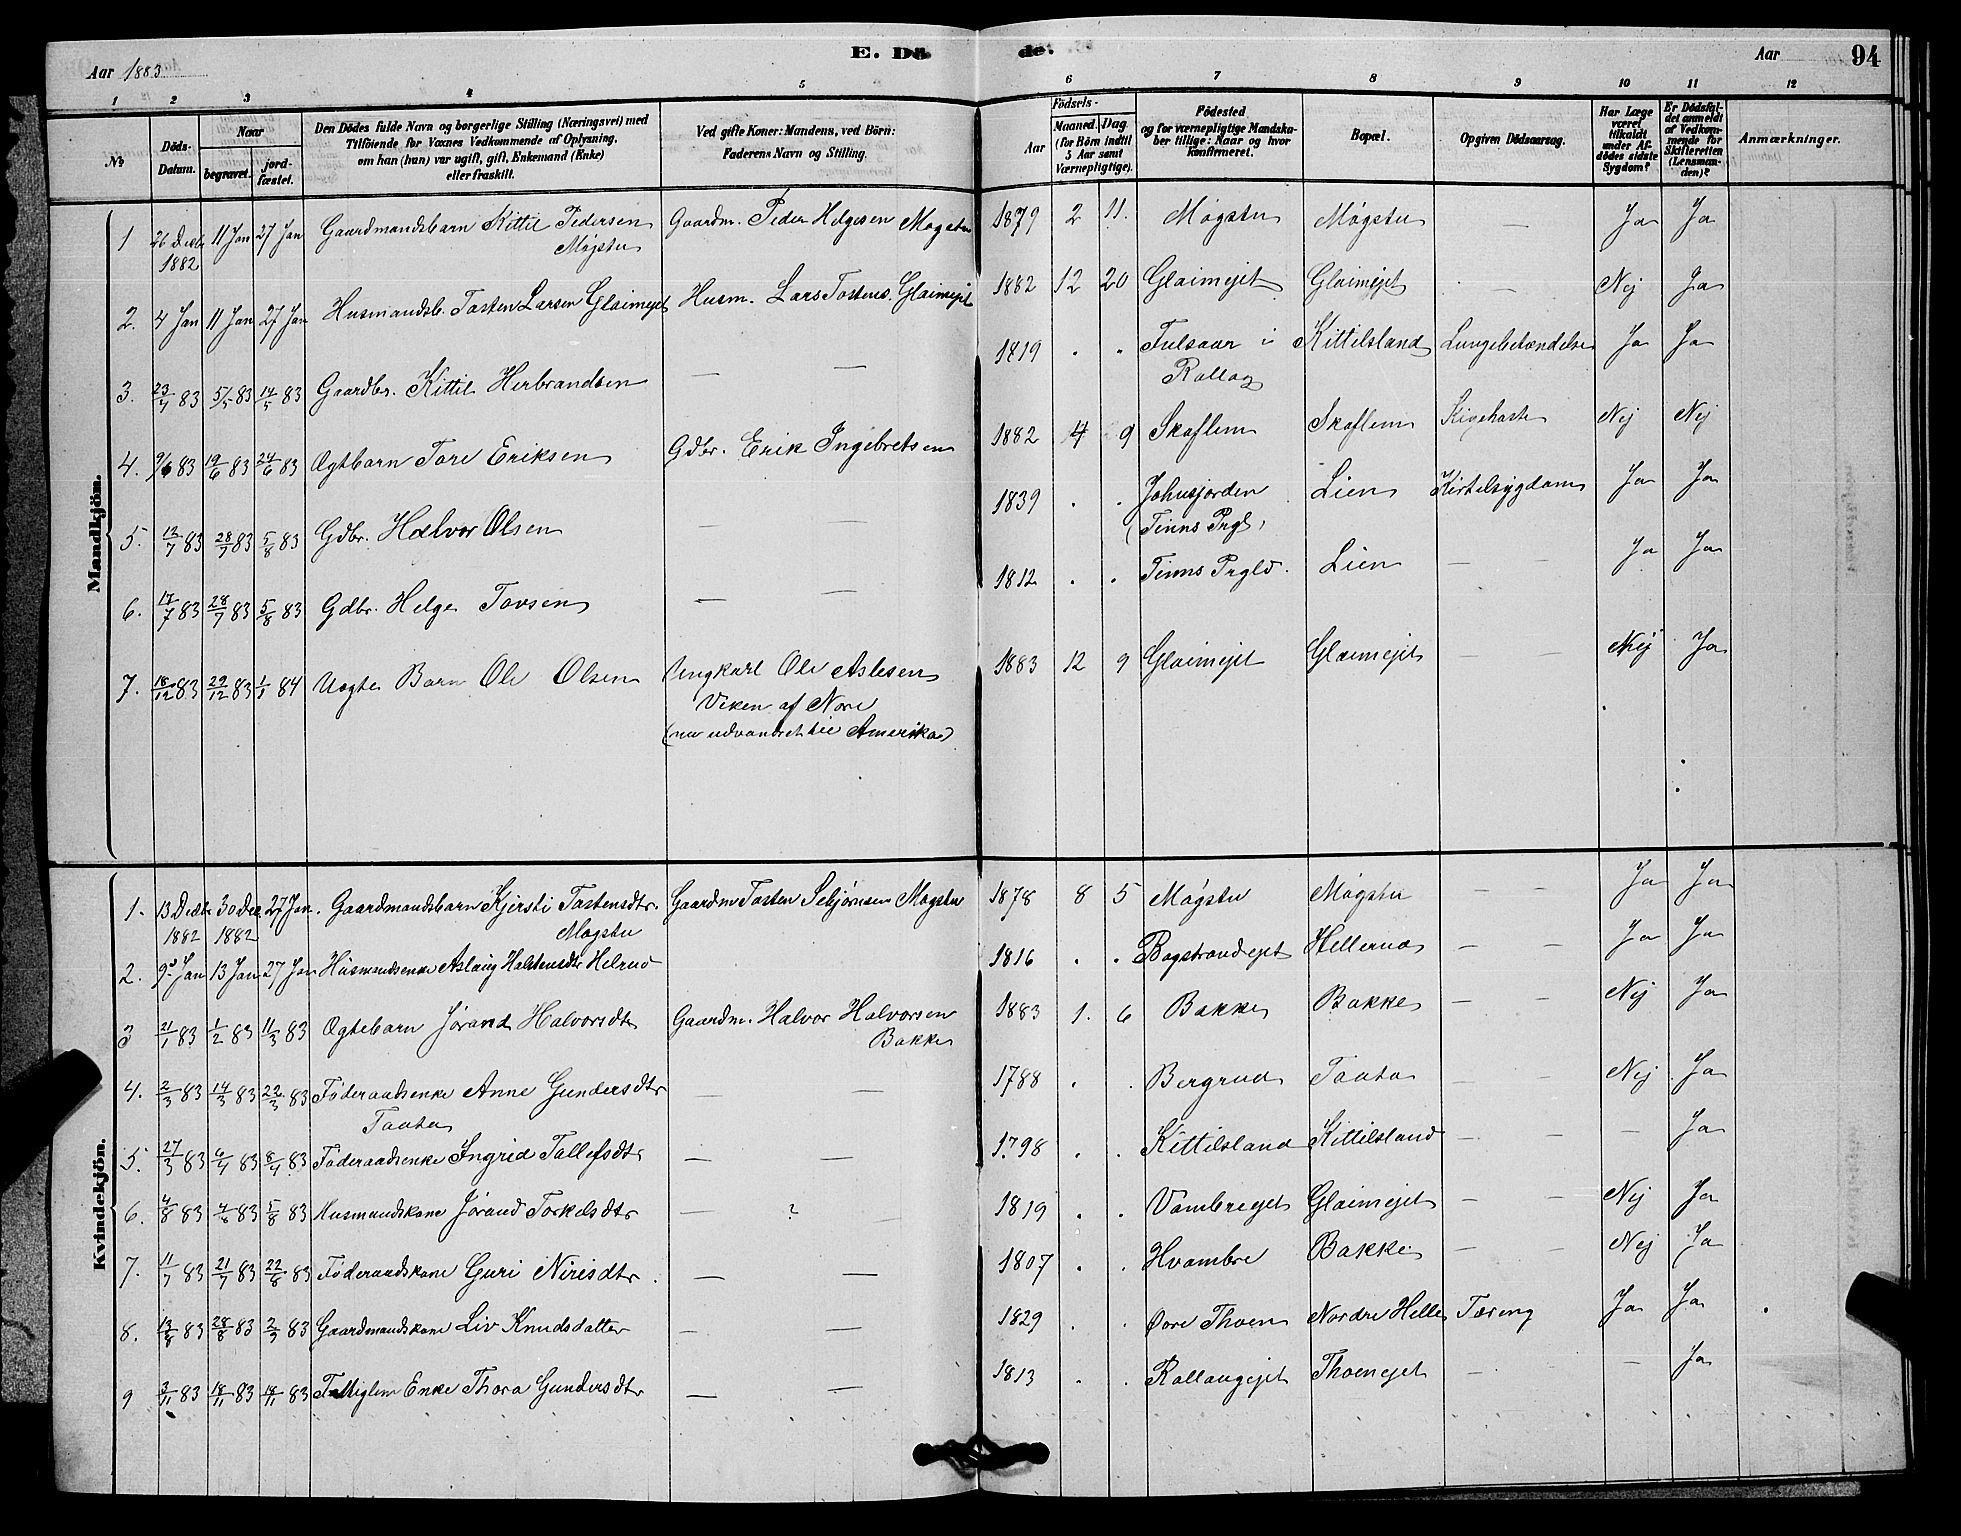 Aar 1883
E. Dö
de.
Aar
94
1 2 3 4 5 6 7 8 9 10 11 12
No
Döds-Datum.
Naar
begravet.
jordfæstet.
Den Dödes fulde Navn og borgerlige Stilling (Næringsvei) med
Tilföiende for Voxnes Vedkommende af Oplysning,
om han (hun) var ugift, gift, Enkemand (Enke)
eller fraskilt.
Ved gifte Koner: Mandens, ved Börn:
Faderens Navn og Stilling.
Födsels-
Aar
Maaned. Dag.
(for Börn indtil
5 Aar samt
Værnepligtige).
Födested
og for værnepligtige Mandskaber tillige: Naar og hvor
konfirmeret.
Bopæl.
Opgiven Dödsaarsag.
Har Læge
været
tilkaldt
under Afdödes sidste
Sygdom?
Er Dödsfaldet anmeldt
af Vedkommende for
Skifteretten
(Lensmanden)?
Anmærkninger.
Mandkjön.
1 26 Decb 11 Jan 27 Jan Gaardmandsbarn Kittil Pedersen Gaardm. Peder Helgesen Møgstu 1879 2 11. Møgstu Møgstu — Ja Ja
1882 Møgstu
2. 4 Jan 11 Jan 27 Jan Husmandsb. Tosten Larsen Glaimejet Husm. Lars Tostens. Glaimejet 1882 12 20 Glaimejet Glaimejet — Nej Ja
3. 23/4 83 5/5 83 14/5 83 Gaardbr. Kittil Herbrandsen — — 1819 " " Fulsaar i Kittilsland Lungebetændelse Ja Ja
Rollag
4. 9/6 83 19/6 83 24/6 83 Ægtbarn Tore Eriksen Gdbr. Erik Ingebretsen 1882 4 9 Skoflem Skoflem Kighoste Nej Nej
5. 12/7 83 28/7 83 5/8 83 Gdbr. Halvor Olsen — — 1839 " " Johusjorden Lien Kirtelsygdom Ja Ja
(Tinns Prgl)
6. 17/7 83 28/7 83 5/8 83 Gdbr. Helge Tovsen — — 1812 " " Tinns Prgld. Lien — — Ja Ja
7. 18/12 83 29/12 83 1/1 84 Uegte Barn Ole Olsen Ungkarl Ole Aslesen 1883 12 9 Glaimejet Glaimejet — — Nej Ja
Viken af Nore
(nu udvandret til Amerika)
Kvindekjön.
1. 13 Decb 30 Dec 27 Jan. Gaardmandsbarn Kjersti Tostensdtr. Gaardm Tosten Sebjørnsen Møgstu 1878 8 5 Møgstu Møgstu — — Ja Ja
1882 1882 Møgstu
2. 9d Jan 13 Jan 27 Jan Husmandsenke Aslaug Halstensdtr Helrud 1816 " " Bogstrandejet Hellerud — — Ja Ja
3 21/1 83 1/2 83 11/3 83 Ægtebarn Jørand Halvorsdtr Gaardm. Halvor Halvorsen 1883 1. 6 Bakke Bakke — — Nej Ja
Bakke
4. 2/3 83 14/3 83 22/3 83 Føderaadsenke Anne Gundersdtr — — 1788 " " Bergrud Taata — — Nej Ja
Taata
5. 27/3 83 6/4 83 8/4 83 Føderaadsenke Ingrid Tollefsdtr — — 1798 " " Kittilsland Kittilsland — — — Ja
6. 4/8 83 83 5/8 83 Husmandskone Jørand Torkelsdtr — ? — 1819 " " Vambrejet Glaimejet — — Nej Ja
7. 11/7 83 21/7 83 22/8 83 Føderaadskone Guri Nirisdtr — — 1807 " " Hvambre Bakke — — Nej Ja
8. 13/8 83 28/8 83 2/9 83 Gaardmandskone Liv Knudsdatter — — 1829 " " Øvre Thoen Nordre Helle Tæring Ja Ja
9 3/11 83 18/11 83 18/11 83 Enke Thora Gundersdtr — — 1813 " " Rollaugejet Thoenejet — — Ja